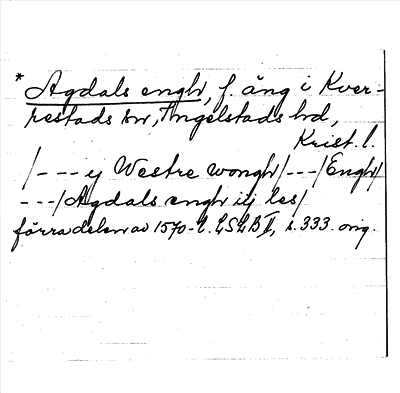 * Agdals engh, f. äng i Kver-
restads sn, Ingelstads hd,
Krist. l.
/--- ij Westre wongh/---/Engh/
---/Agdals engh iij les/
förra delen av 1570-t. LSLB II, s. 333. orig.